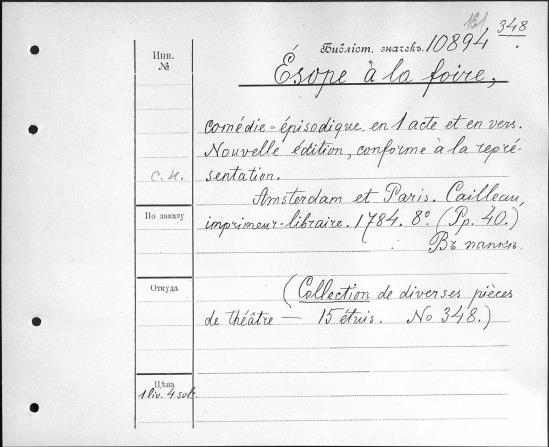 161 348
Библіот. значекъ. 10894
Инв.
№
Ésope à la foire,
comédie=épisodique en 1 acte et en vers.
Nouvelle édition, conforme à la repré-
С. Н.
sentation.
Amsterdam et Paris. Cailleau,
По заказу
imprimeur-libraire. 1784. 8º. (Pp. 40.)
Въ папкѣ.
Откуда
(Collection de diverses pièces
de théâtre — 15 étuis. No 348.)
Цѣна
1 liv. 4 sols.